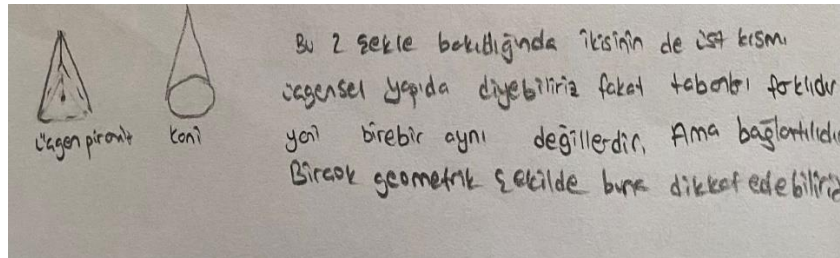 Bu 2 şekle bakıldığında ikisinin de üst kısmı
üçgensel yapıda diyebiliriz fakat tabanları farklıdır
yani birebir aynı değillerdir, Ama bağlantılıdır
Birçok geometrik şekilde buna dikkat edebiliriz
üçgen piramit
koni